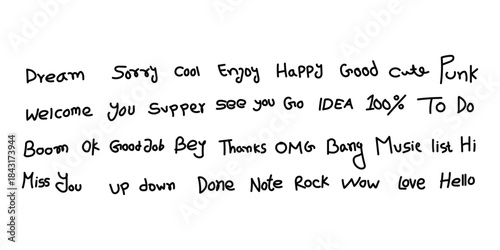 Dream Sorry Cool Enjoy Happy Good cute Punk
Welcome You Supper see you Go IDEA 100% To Do
Boom Ok Good Job Bey Thanks OMG Bang Musie list Hi
Miss You up down Done Note Rock Wow Love Hello
Adobe Stock | #1843173944